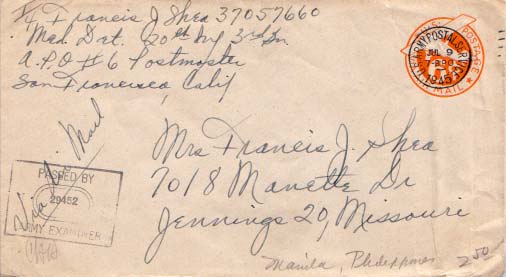 T/4 Francis J Shea 37057660
Med. Det. 20th Inf 3rd Bn
A.P.O #6 Postmaster
San Francisco, Calif
U.S. POSTAGE
6¢
AIR MAIL
U.S. ARMY POSTAL SERVICE
JUL 9
1945
Via Air Mail
PASSED BY
29452
ARMY EXAMINER
Mrs Francis J. Shea
7018 Manette Dr
Jennings 20, Missouri
Manila, Philippines
2.50